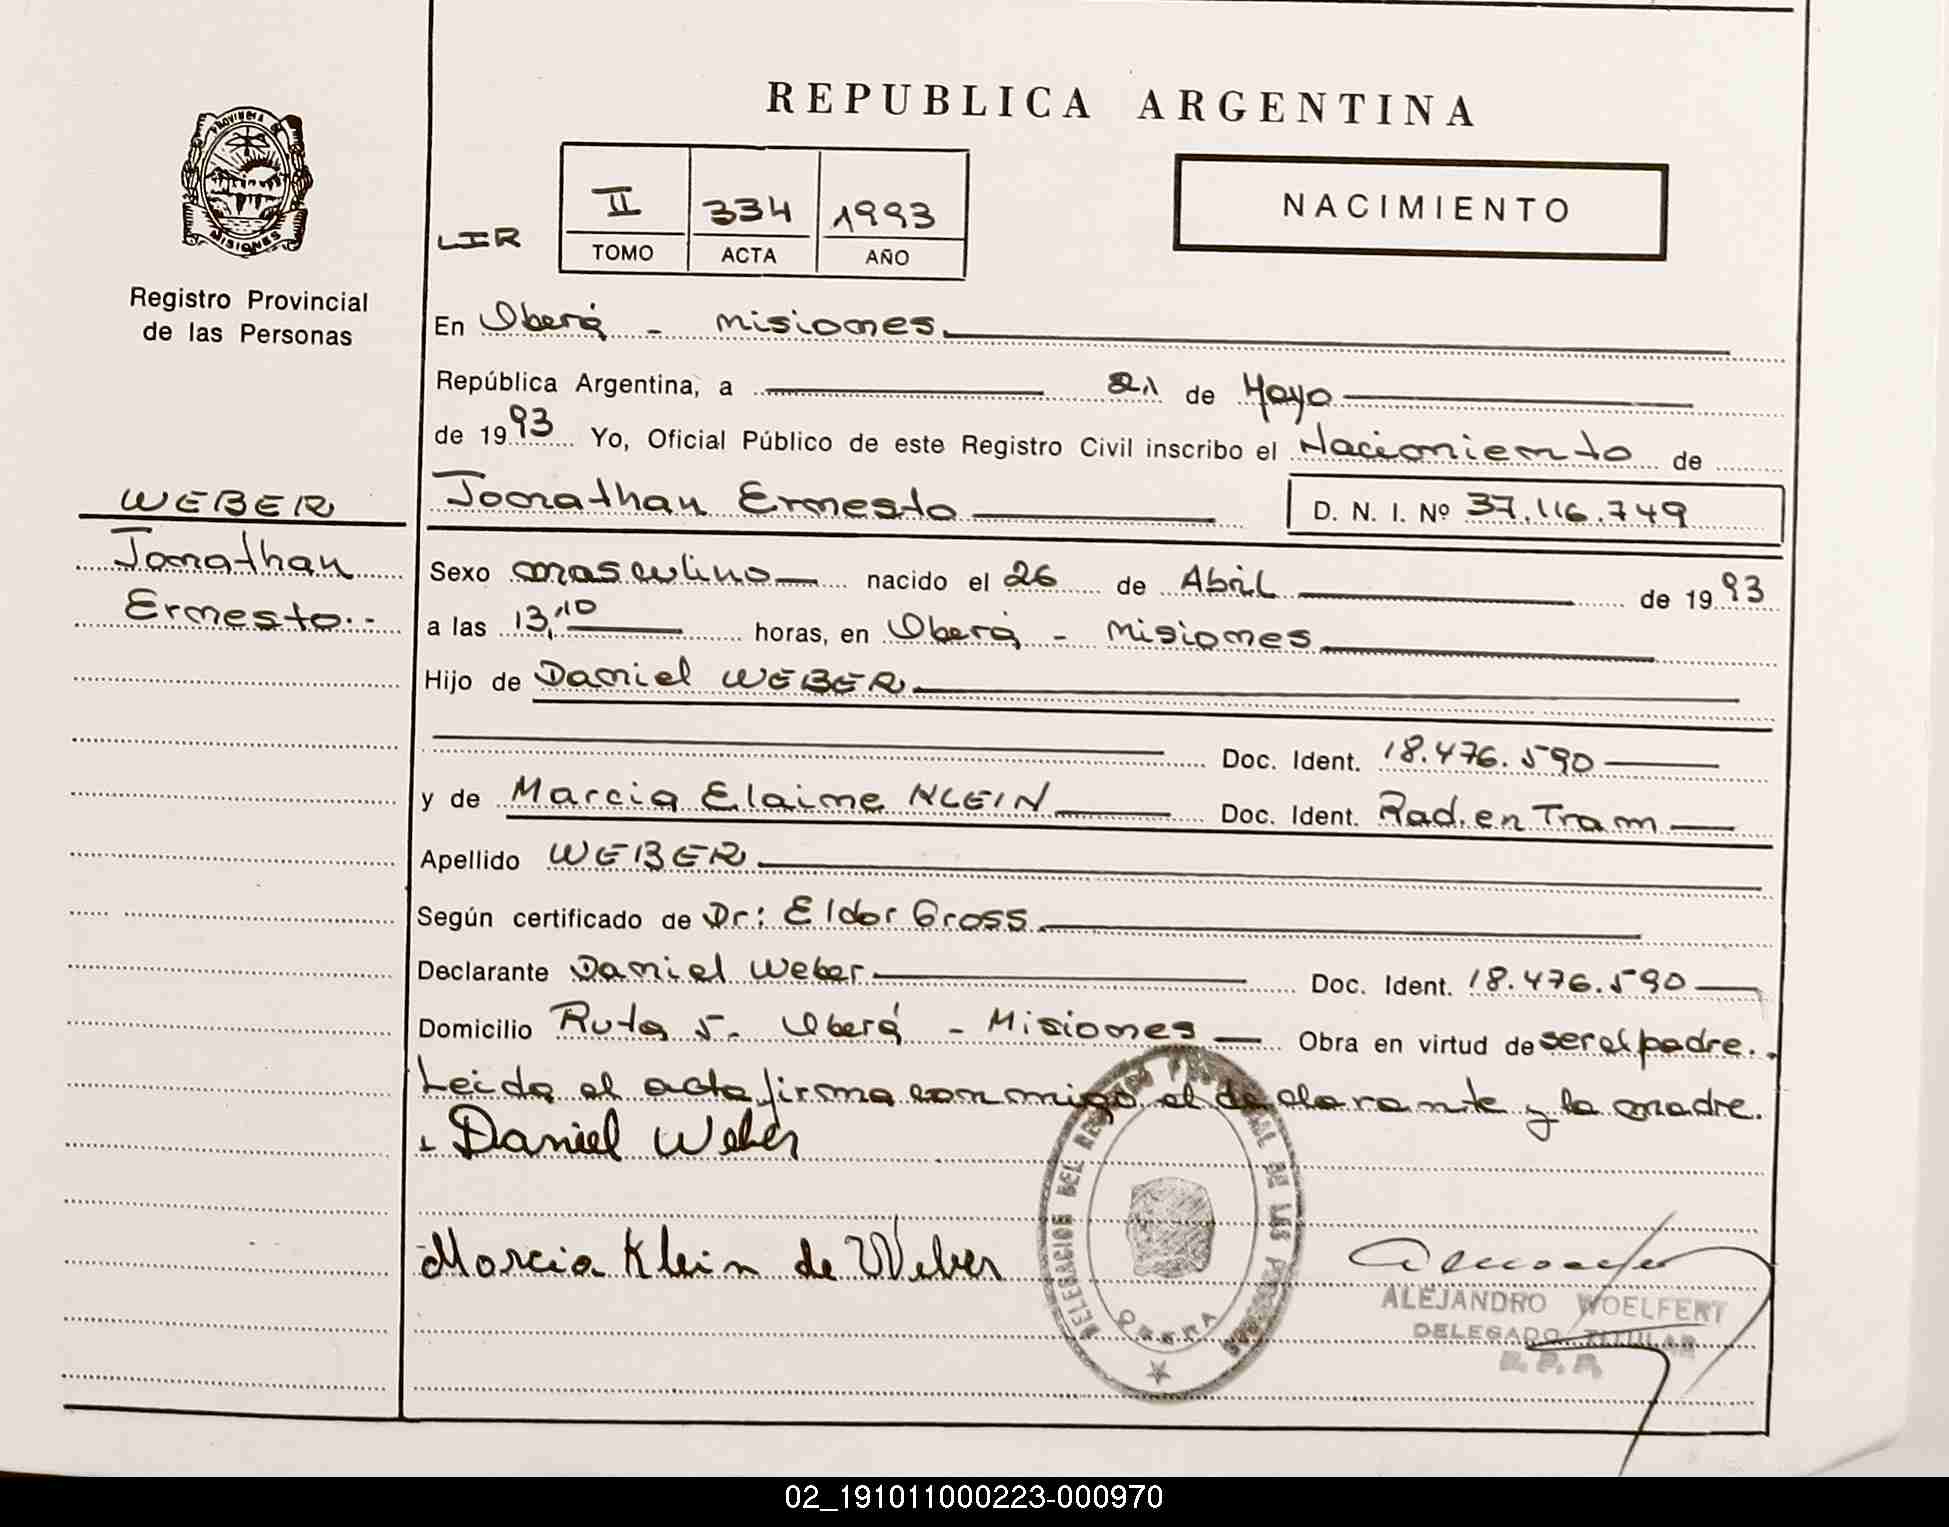 REPUBLICA ARGENTINA
PROVINCIA DE
MISIONES
Registro Provincial
de las Personas
LIR
II 334 1993
TOMO ACTA AÑO
NACIMIENTO
En Oberá - Misiones
República Argentina, a 21 de Mayo
de 1993 Yo, Oficial Público de este Registro Civil inscribo el Nacimiento de
WEBER
Jonathan
Ernesto
Jonathan Ernesto D. N. I. Nº 37.116.749
Sexo masculino nacido el 26 de Abril de 1993
a las 13,10 horas, en Oberá - Misiones
Hijo de Daniel WEBER
Doc. Ident. 18.476.590
y de Marcia Elaine KLEIN Doc. Ident. Rad. en Tram
Apellido WEBER
Según certificado de Dr: Eldor Gross
Declarante Daniel Weber Doc. Ident. 18.476.590
Domicilio Ruta 5. Oberá - Misiones Obra en virtud de ser el padre.
Leida el acta firma conmigo el declarante y la madre.
Daniel Weber
Marcia Klein de Weber
DELEGACION DEL REGISTRO PROVINCIAL DE LAS PERSONAS
OBERA
ALEJANDRO WOELFERT
DELEGADO TITULAR
R. P. P.
02_191011000223-000970